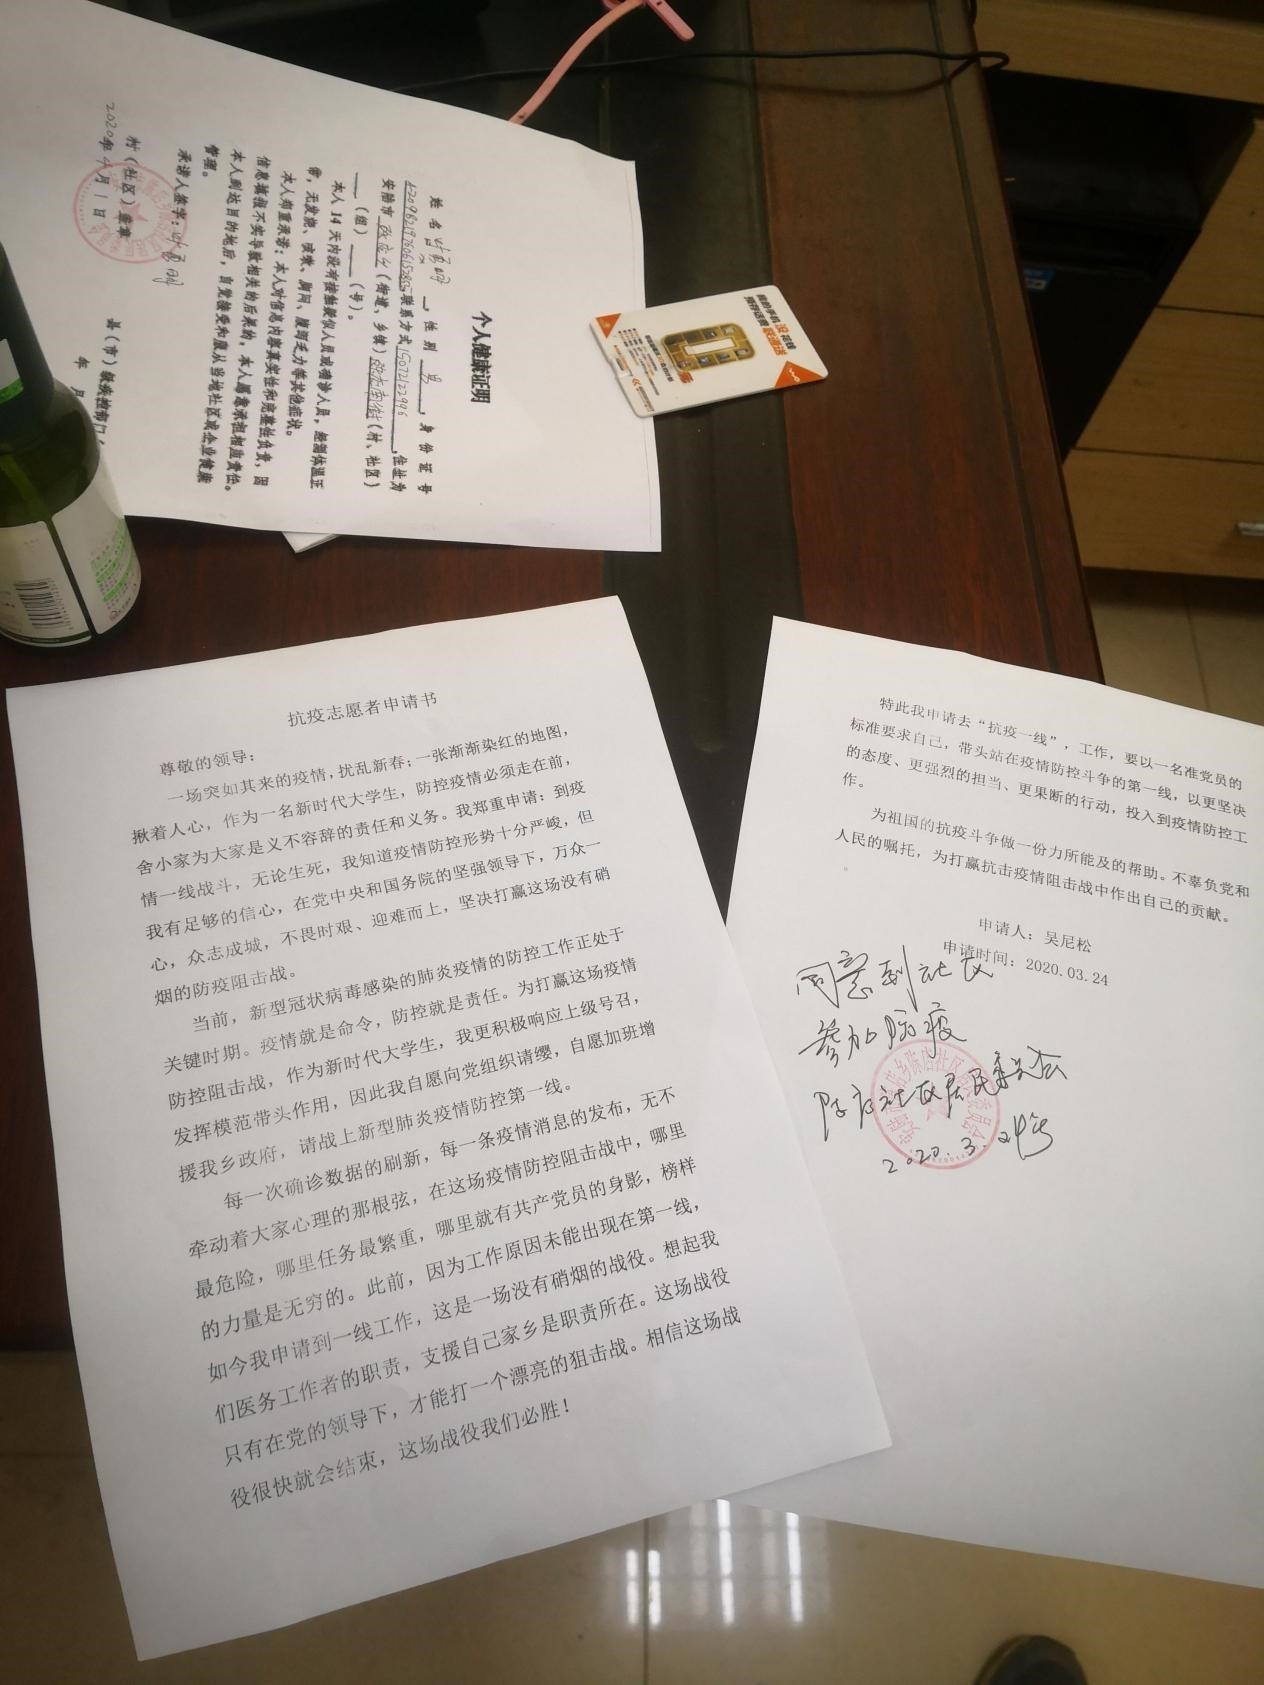 个人健康证明
姓名
，性别 男 ，身份证号
，联系方式 15072122996 ，住址为
安陆市 (街道、乡镇) (村、社区)
(组) (号)。
本人 14 天内没有接触疑似人员或确诊人员，经测体温正
常，无发烧、咳嗽、胸闷、腹泻乏力等其他症状。
本人郑重承诺：本人对信息内容真实性和完整性负责，因
信息填报不实导致相关的后果的，本人愿意承担相应责任。
本人到达目的地后，自觉接受和服从当地社区或企业健康
管理。
承诺人签字：
村（社区）盖章
2020年4月1日
县（市）级疾控部门
年 月
抗疫志愿者申请书
尊敬的领导：
一场突如其来的疫情，扰乱新春；一张渐渐染红的地图，
揪着人心，作为一名新时代大学生，防控疫情必须走在前，
舍小家为大家是义不容辞的责任和义务。我郑重申请：到疫
情一线战斗，无论生死，我知道疫情防控形势十分严峻，但
我有足够的信心，在党中央和国务院的坚强领导下，万众一
心，众志成城，不畏时艰、迎难而上，坚决打赢这场没有硝
烟的防疫阻击战。
当前，新型冠状病毒感染的肺炎疫情的防控工作正处于
关键时期。疫情就是命令，防控就是责任。为打赢这场疫情
防控阻击战，作为新时代大学生，我更积极响应上级号召，
发挥模范带头作用，因此我自愿向党组织请缨，自愿加班增
援我乡政府，请战上新型肺炎疫情防控第一线。
每一次确诊数据的刷新，每一条疫情消息的发布，无不
牵动着大家心理的那根弦，在这场疫情防控阻击战中，哪里
最危险，哪里任务最繁重，哪里就有共产党员的身影，榜样
的力量是无穷的。此前，因为工作原因未能出现在第一线，
如今我申请到一线工作，这是一场没有硝烟的战役。想起我
们医务工作者的职责，支援自己家乡是职责所在。这场战役
只有在党的领导下，才能打一个漂亮的狙击战。相信这场战
役很快就会结束，这场战役我们必胜！
特此我申请去“抗疫一线”，工作，要以一名准党员的
标准要求自己，带头站在疫情防控斗争的第一线，以更坚决
的态度、更强烈的担当、更果断的行动，投入到疫情防控工
作。
为祖国的抗疫斗争做一份力所能及的帮助。不辜负党和
人民的嘱托，为打赢抗击疫情阻击战中作出自己的贡献。
。
申请人：吴尼松
申请时间：2020.03.24
同意到社区
参加防疫
陈店社区居民委员会
2020.3.24号